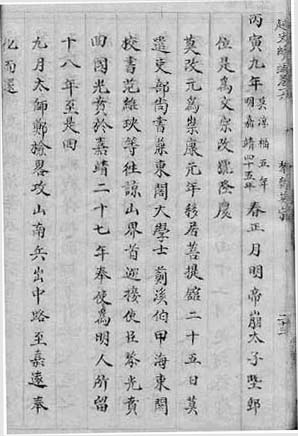 丙寅九年莫淳福五年明嘉靖四十五年春正月明帝崩太子
位是爲文宗改號隆慶
莫改元爲崇康元年移居菩提館二十五日莫
遣吏部尚書兼東閣大學士薊溪伯甲海東閣
校書范維玦等往諒山界首迎接使臣黎光賁
回國光賁於嘉靖二十七年奉使爲明人所留
十八年至是回
九月太師鄭檢畧攻山南兵出中路至嘉遠奉
化而還